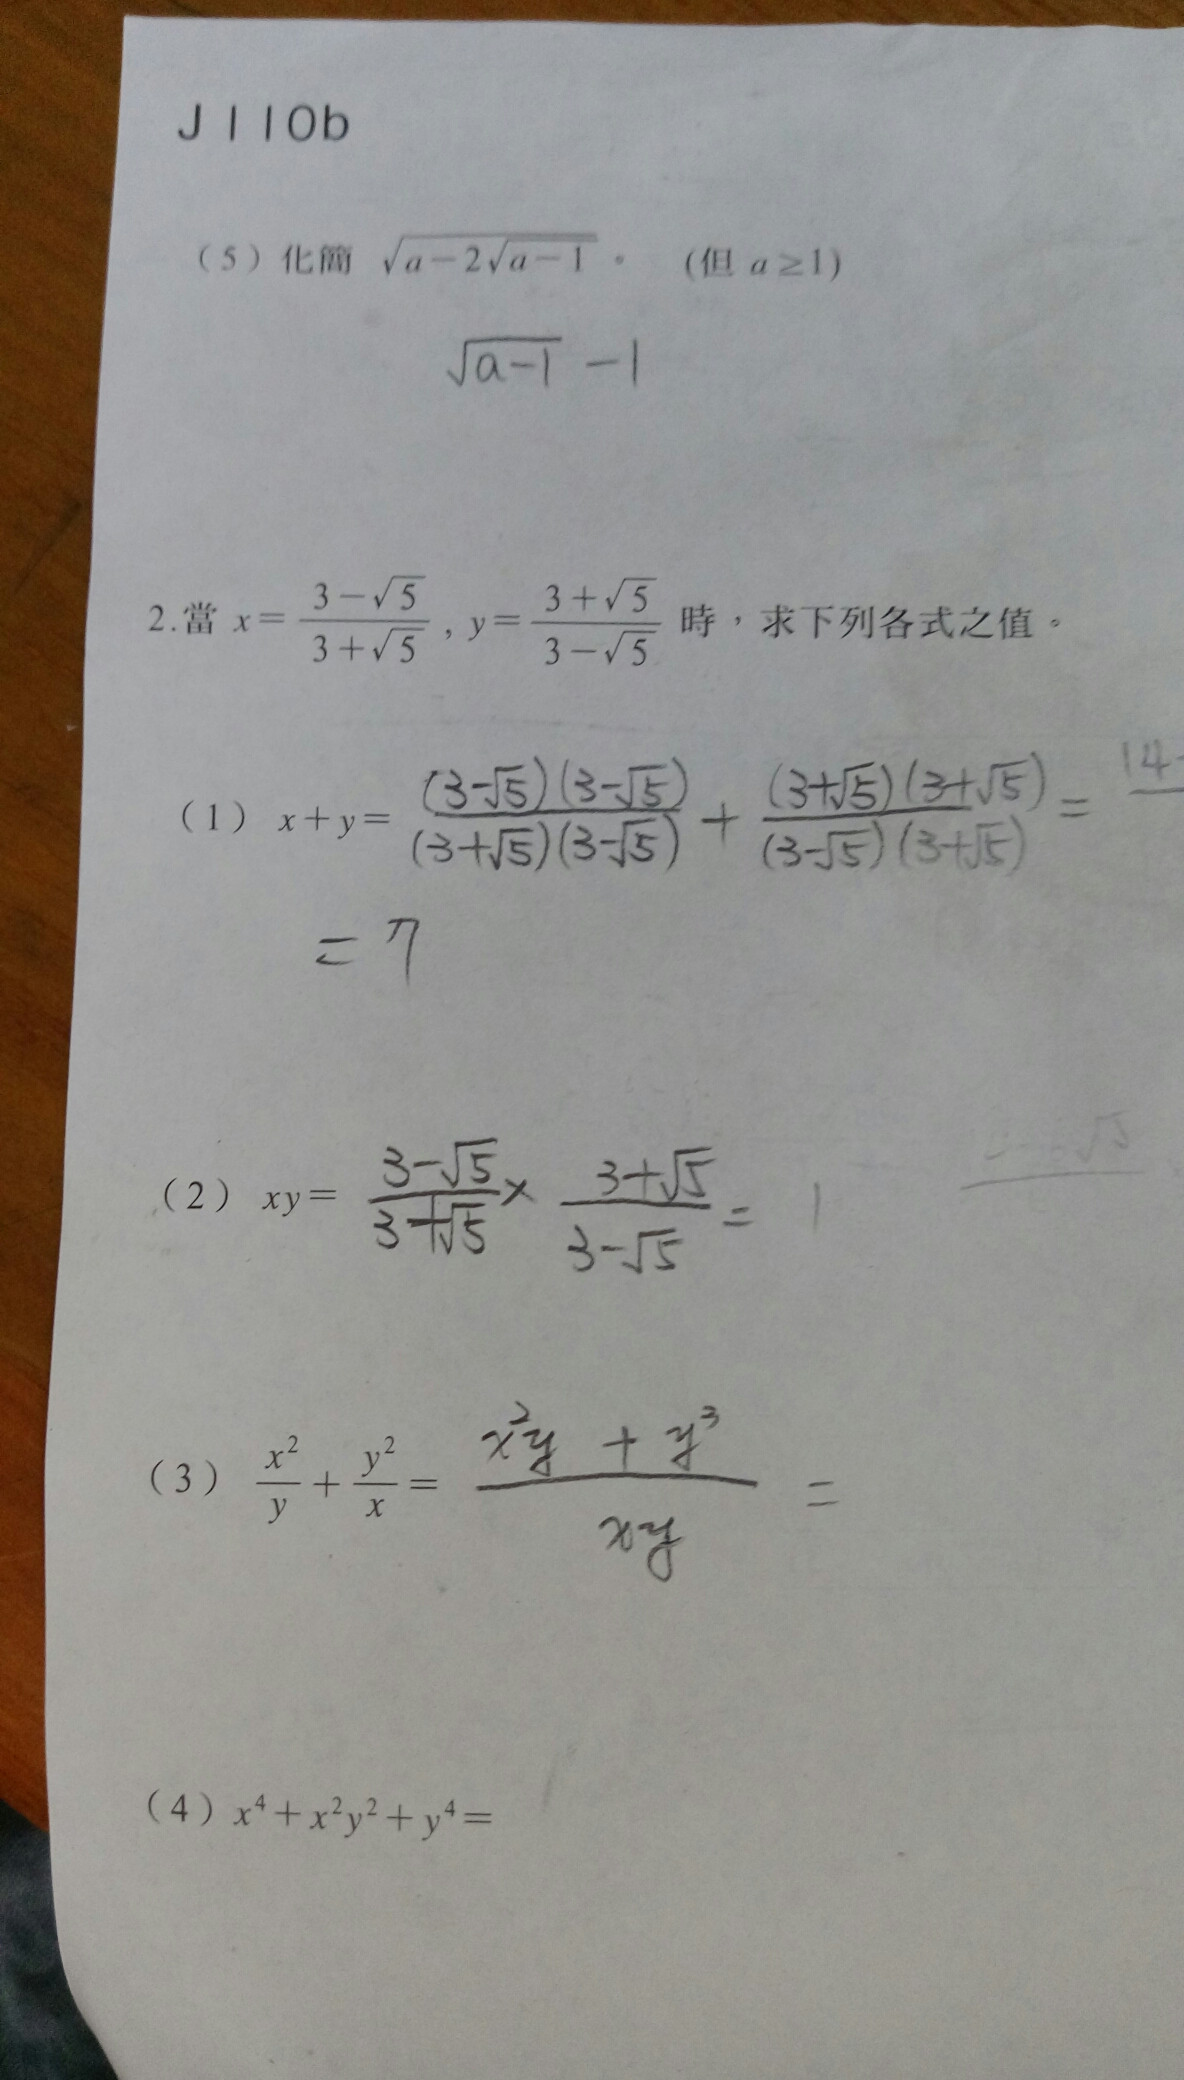 J110b
(5)化簡 √(a-2√(a-1))。 (但 a≥1)
√(a-1) -1
2.當 x= (3-√5)/(3+√5) , y= (3+√5)/(3-√5) 時，求下列各式之值。
(1) x+y= (3-√5)(3-√5)/(3+√5)(3-√5) + (3+√5)(3+√5)/(3-√5)(3+√5) = 14
= 7
(2) xy= (3-√5)/(3+√5) × (3+√5)/(3-√5) = 1
(3) x²/y + y²/x = (x²y + y³)/xy =
(4) x⁴+x²y²+y⁴=